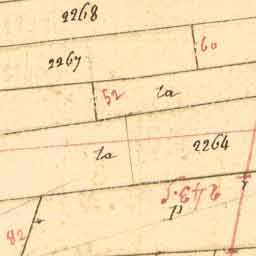 2268
60
2267
52 la
la 2264
243
82